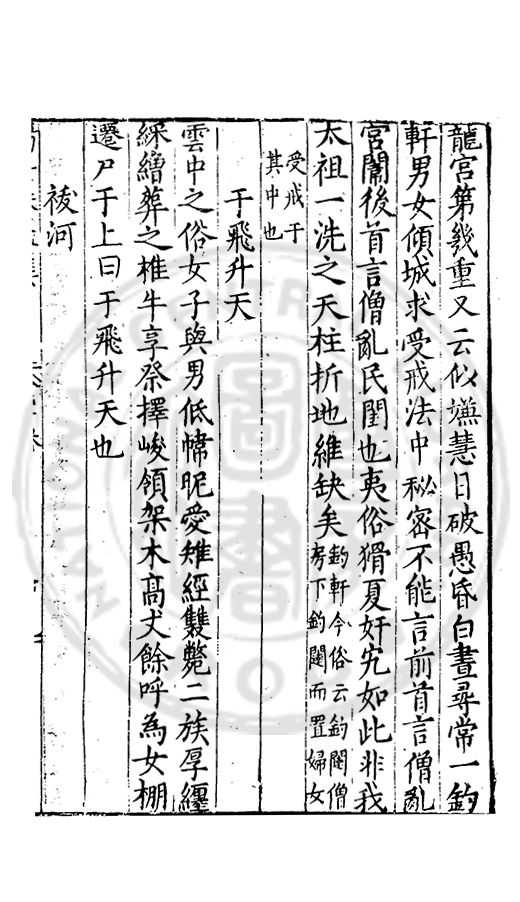 龍宮第幾重又云似㷼慧日破愚昏白晝尋常一鈎
軒男女傾城求受戒法中秘密不能言前首言僧亂
宮闈後首言僧亂民閨也夷俗猾夏奸宄如此非我
太祖一洗之天柱折地維缺矣鈎軒今俗云鈎闌僧
房下鈎闌而置婦女
受戒于
其中也
于飛升天
雲中之俗女子與男低幃昵愛雉經雙斃二族厚纏
綵繒葬之椎牛享祭擇峻領架木高犬餘呼為女棚
遷尸于上曰于飛升天也
祓河